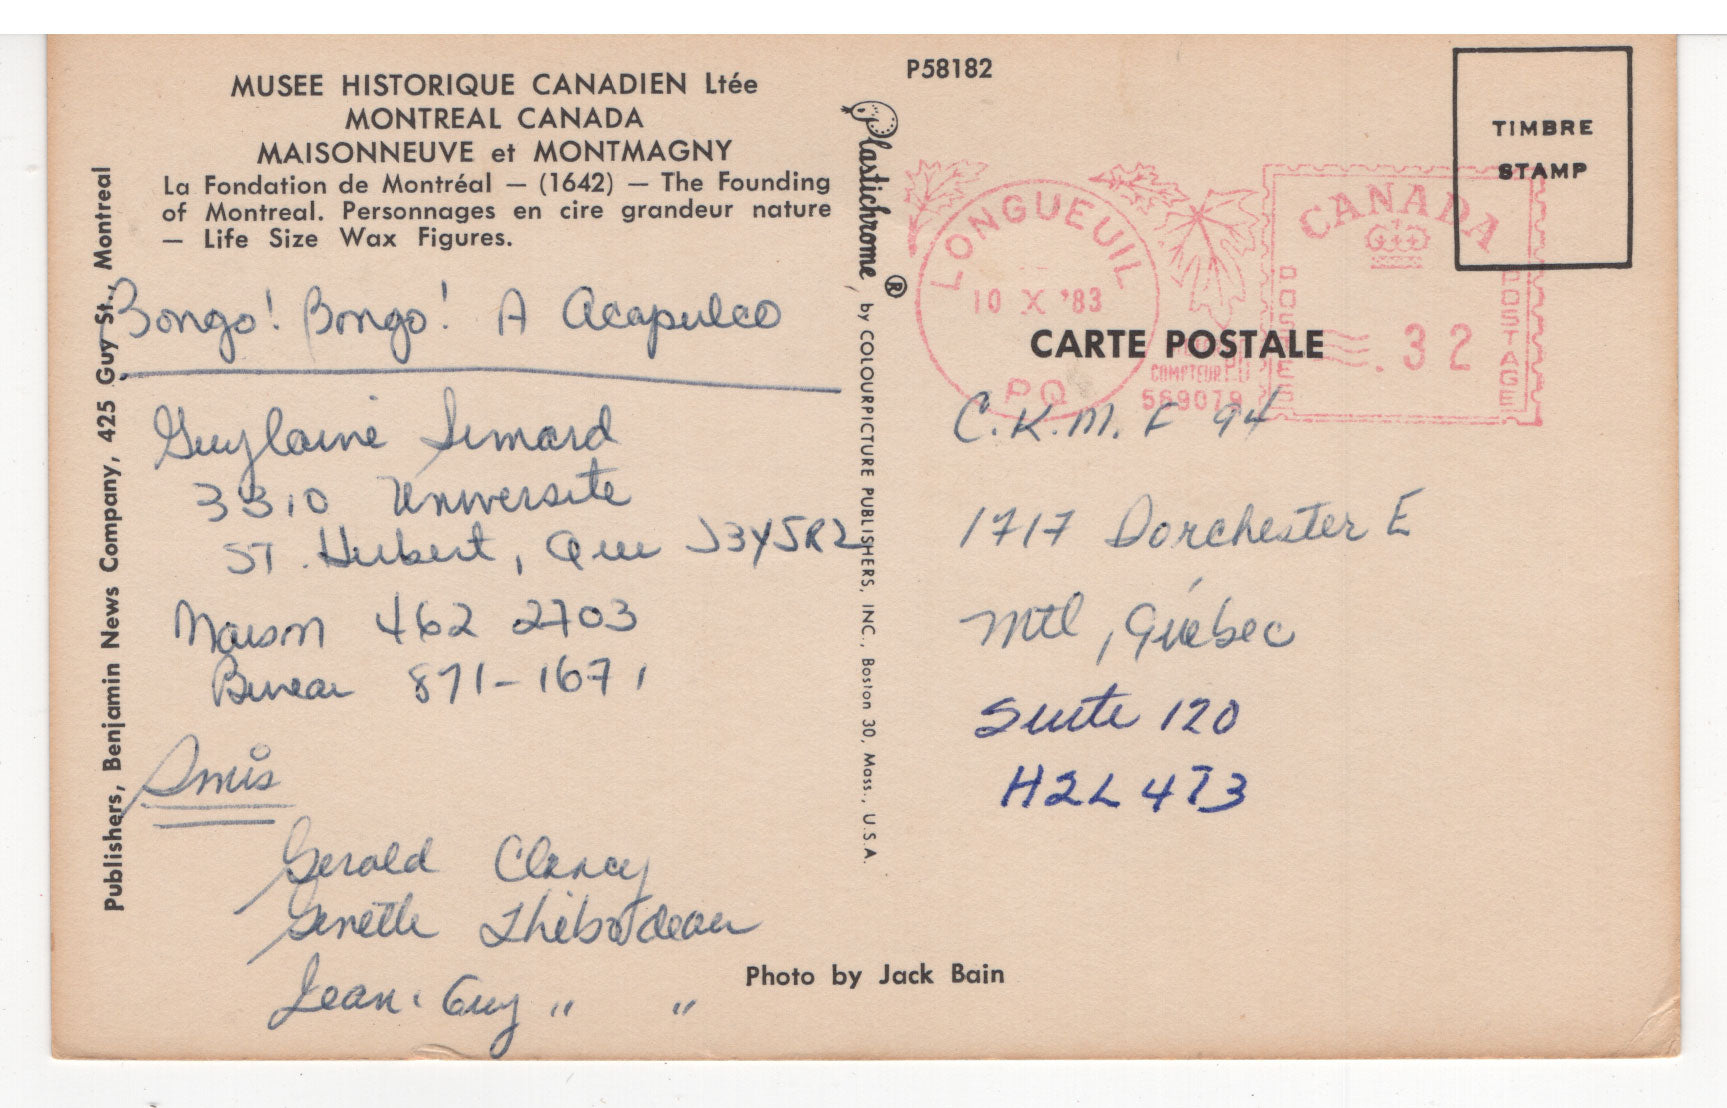 MUSEE HISTORIQUE CANADIEN Ltée
MONTREAL CANADA
MAISONNEUVE et MONTMAGNY
La Fondation de Montréal — (1642) — The Founding
of Montreal. Personnages en cire grandeur nature
— Life Size Wax Figures.
Bongo! Bongo! A Acapulco
Guylaine Simard
3310 Universite
ST. Hubert, Que J3Y5R2
Maison 462 2703
Bureau 871-1671
Amis
Gerald Clancy
Ginette Thibodeau
Jean-Guy " "
Publishers, Benjamin News Company, 425 Guy St., Montreal
Plastichrome ® by COLOURPICTURE PUBLISHERS, INC., Boston 30, Mass., U.S.A.
P58182
TIMBRE
STAMP
LONGUEUIL
10 X '83
PQ
COMPTEUR
569079
CANADA
POSTES
POSTAGE
.32
CARTE POSTALE
C.K.M.F 94
1717 Dorchester E
Mtl, Québec
Suite 120
H2L 4T3
Photo by Jack Bain